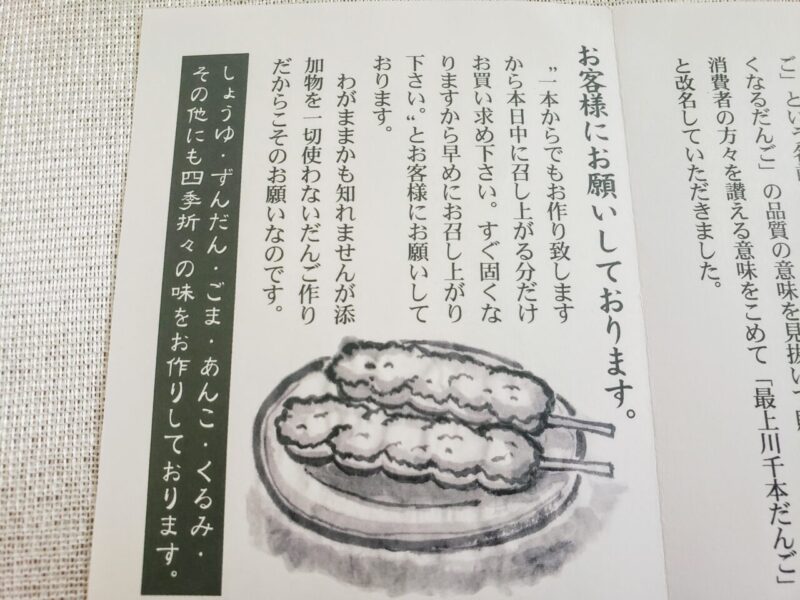 ご」という
くなるだんご」の品質の意味を見抜いて
消費者の方々を讃える意味をこめて「最上川千本だんご」
と改名していただきました。
お客様にお願いしております。
〝一本からでもお作り致します
から本日中に召し上がる分だけ
お買い求め下さい。すぐ固くな
りますから早めにお召し上がり
下さい。〟とお客様にお願いして
おります。
わがままかも知れませんが添
加物を一切使わないだんご作り
だからこそのお願いなのです。
しょうゆ・ずんだん・ごま・あんこ・くるみ・
その他にも四季折々の味をお作りしております。